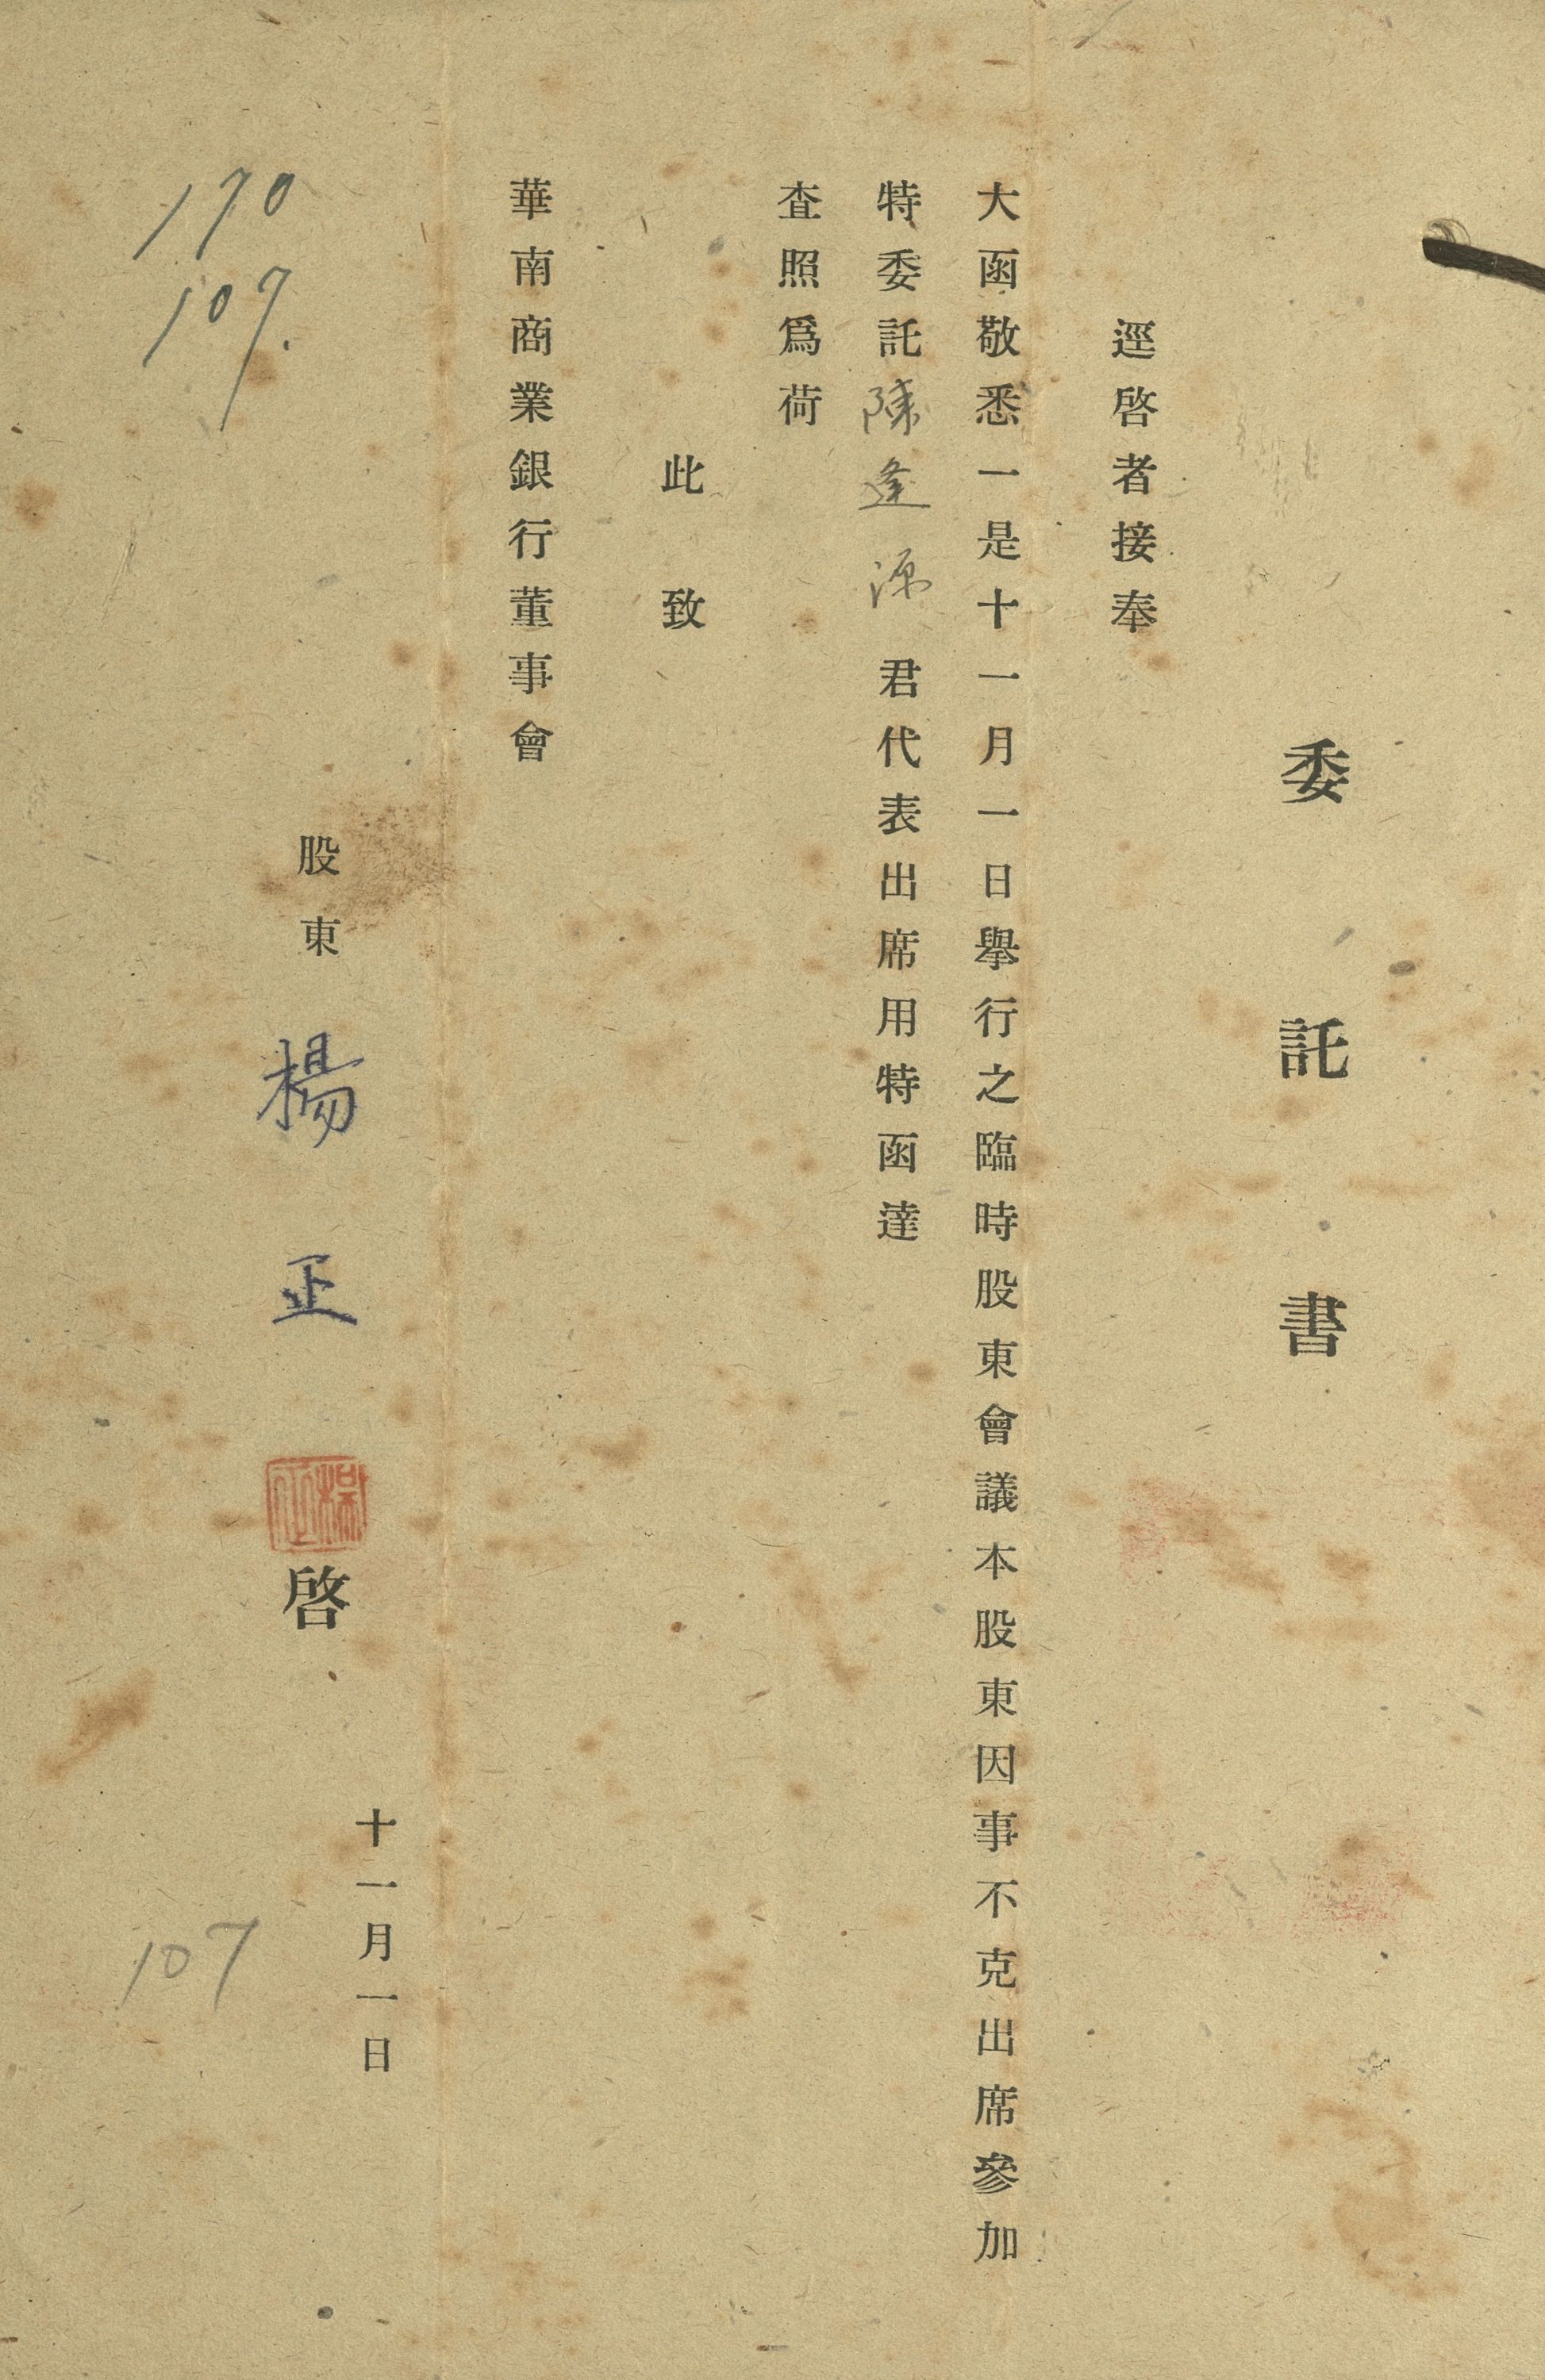 委託書
逕啓者接奉
大函敬悉一是十一月一日舉行之臨時股東會議本股東因事不克出席參加
特委託陳逢源君代表出席用特函達
查照爲荷
此致
華南商業銀行董事會
十一月一日
股東 楊正 啓
170
107.
107